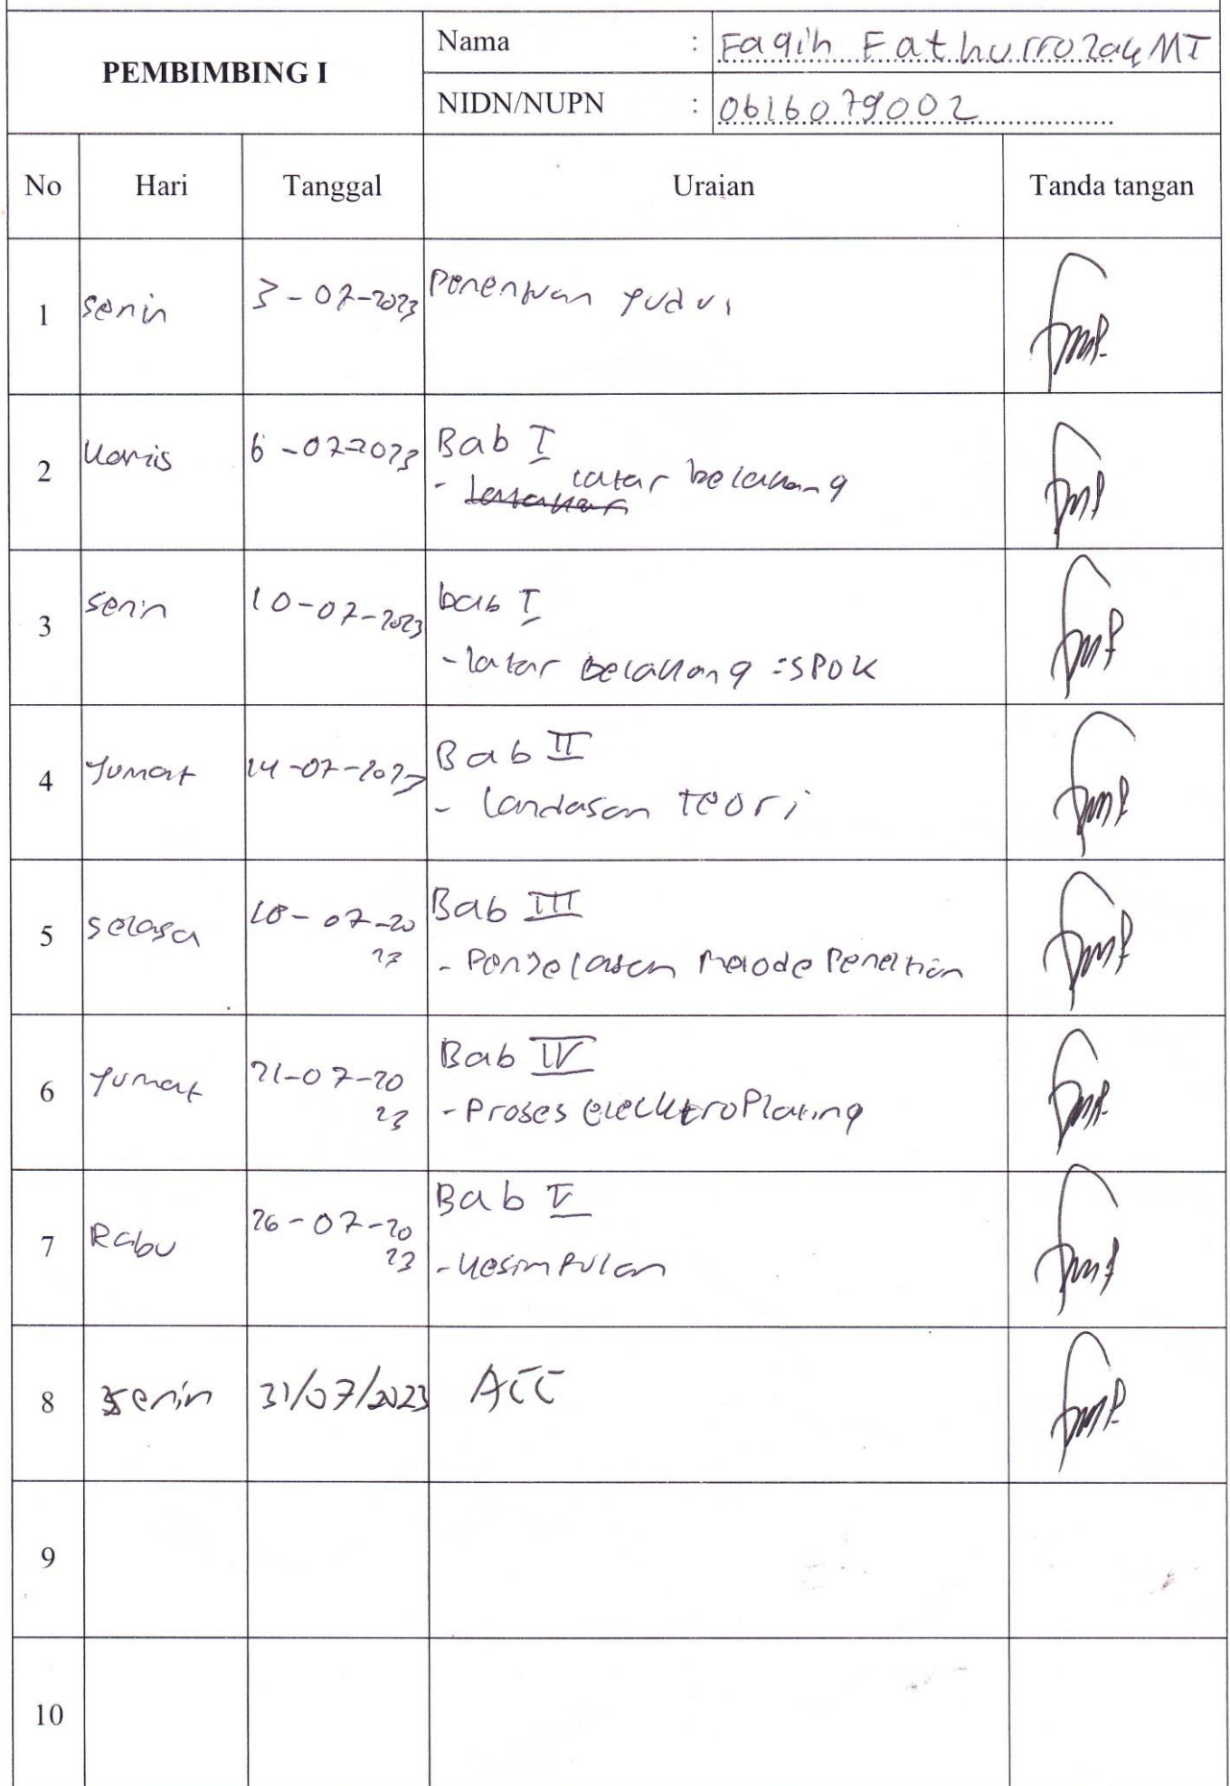 PEMBIMBING I
Nama : Faqih Fathurrozak MT
NIDN/NUPN : 0616079002
No Hari Tanggal Uraian Tanda tangan
1 Senin 3-07-2023 Penentuan Judul
2 Kamis 6-07-2023 Bab I
- latar belakang
3 Senin 10-07-2023 bab I
- latar belakang : SPOK
4 Jumat 14-07-2023 Bab II
- Landasan Teori
5 Selasa 18-07-20 Bab III
23 - Penjelasan Metode Penelitian
6 Jumat 21-07-20 Bab IV
23 - Proses elecktroPlating
7 Rabu 26-07-20 Bab V
23 - Kesimpulan
8 Senin 31/07/2023 ACC
9
10